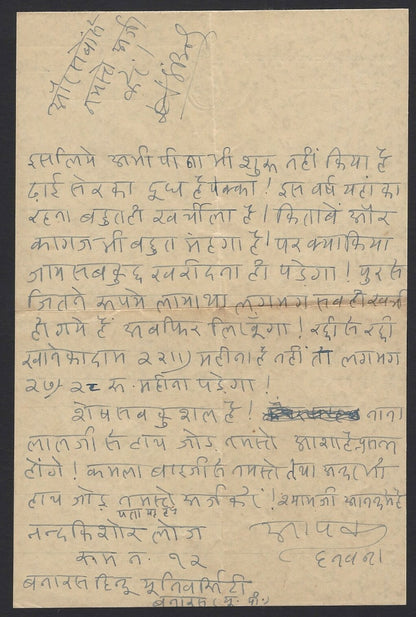 और सबको
नमस्ते अर्ज
करें!
इसलिये अभी पीना भी शुरू नहीं किया है
ढ़ाई सेर का दूध है पक्का! इस वर्ष यहां का
रहना बहुतही खर्चीला है। किताबें और
कागज भी बहुत मंहगा है। पर क्या किया
जाय सब कुछ खरीदना ही पड़ेगा!
जितने रूपये लाया था लगभग सब ही खर्च
हो गये हैं अब फिर लिखूंगा! रद्दी से रद्दी
खाने का दाम २२॥) महीना है नहीं तो लगभग
२७) २८ रु. महीना पड़ेगा!
शेष सब कुशल है! नाना
लालजी से हाथ जोड़ नमस्ते आशा है प्रसन्न
होंगे! कमला बाई जी से नमस्ते तथा
हाथ जोड़ नमस्ते अर्ज करें! श्यामजी आनन्द में है
पता यह है
नन्दकिशोर लोज आपका
रूम न. १२
बनारस हिन्दू यूनिवर्सिटी
बनारस (यू. पी.)